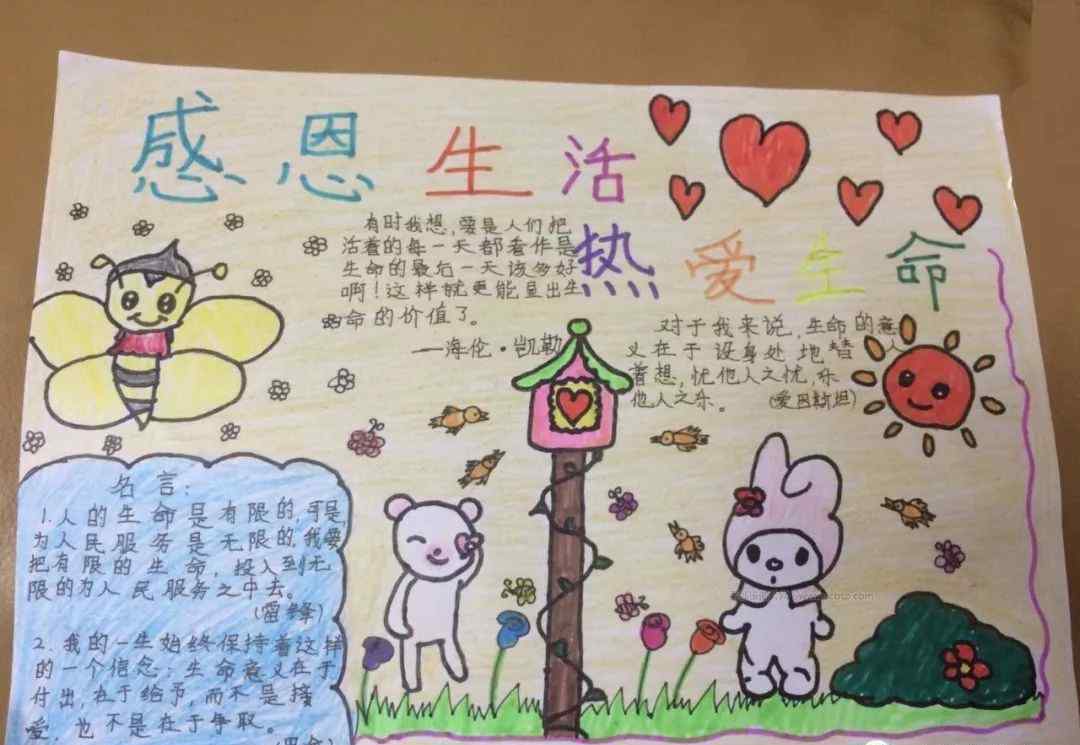 感恩生活
热爱生命
有时我想,爱是人们把
活着的每一天都看作是
生命的最后一天该多好
啊!这样就更能显出生
命的价值了。
—海伦·凯勒
对于我来说,生命的意
义在于设身处地替人
着想,忧他人之忧,乐
他人之乐。 (爱因斯坦)
名言:
1.人的生命是有限的,可是,
为人民服务是无限的,我要
把有限的生命,投入到无
限的为人民服务之中去。
(雷锋)
2.我的一生始终保持着这样
的一个信念:生命意义在于
付出,在于给予,而不是接
受,也不是在于争取。